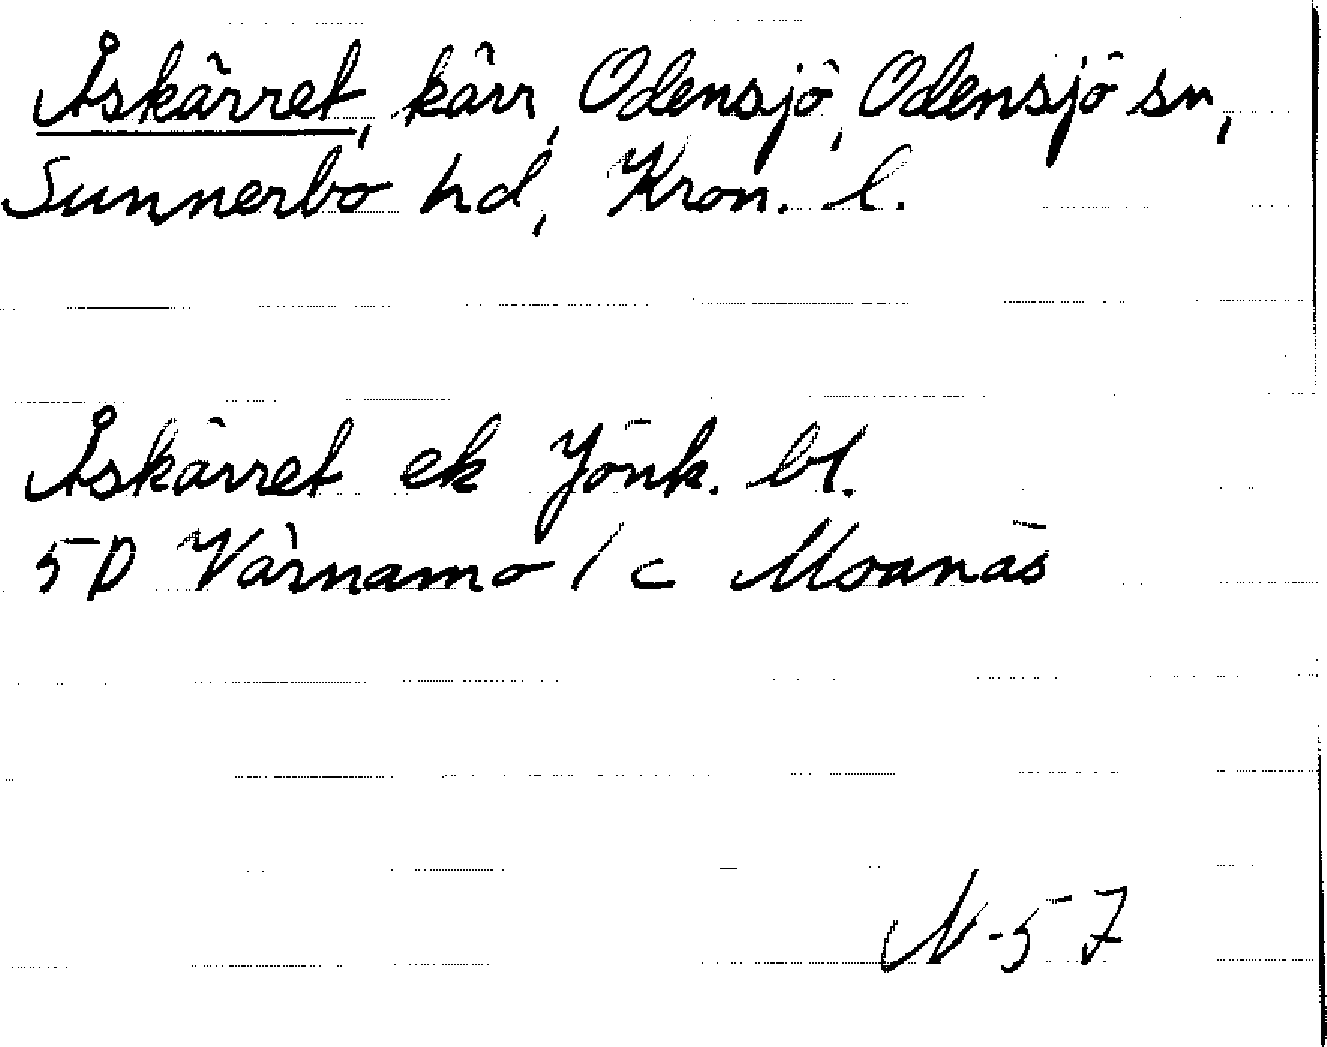 Åskärret, kärr, Odensjö, Odensjö sn,
Sunnerbo hd, Kron. l.
Åskärret ek Jönk. bl.
5D Värnamo / c Moanäs
N-57